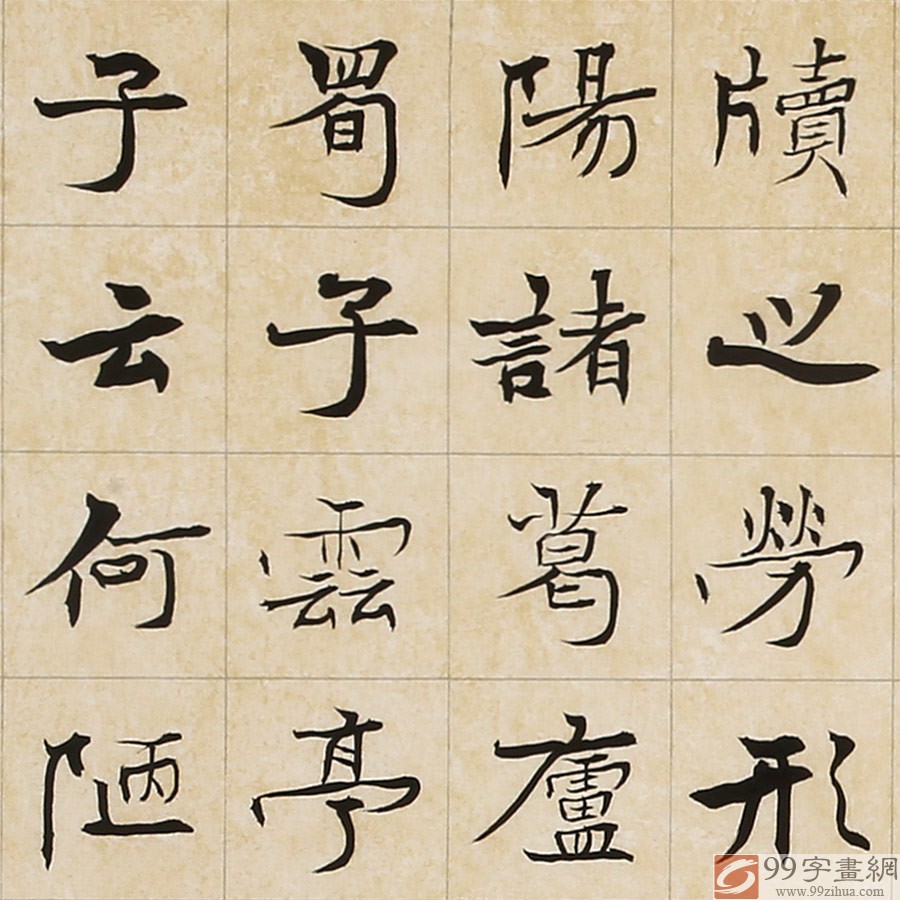 牘之勞形
陽諸葛廬
蜀子雲亭
子云何陋
99字畫網
www.99zihua.com